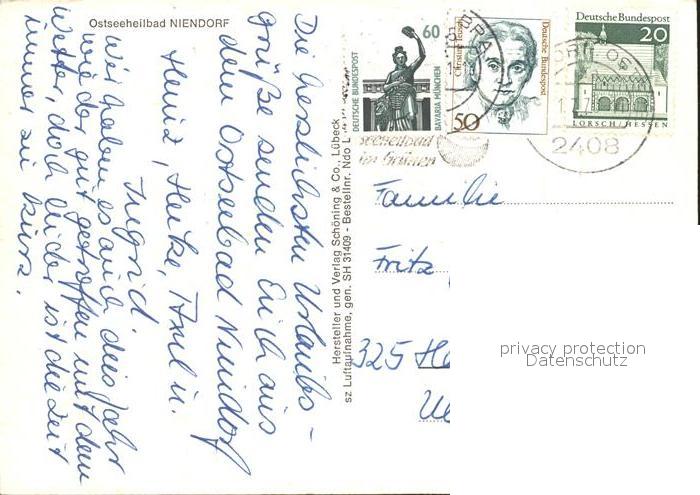 Ostseeheilbad NIENDORF
Die herzlichsten Urlaubs-
grüße senden Euch aus
dem Ostseebad Niendorf
Heinz, Heike, Axel u.
Ingrid.
Wir haben es auch dies Jahr
wieder gut getroffen mit dem
Wetter, doch leider ist die Zeit
immer zu kurz.
Hersteller und Verlag Schöning & Co., Lübeck
sz Luftaufnahme, gen. SH 31409 - Bestellnr. Ndo L
60
DEUTSCHE BUNDESPOST
BAVARIA MÜNCHEN
Deutsche Bundespost
50
Deutsche Bundespost
20
LORSCH/HESSEN
2408
Familie
Fritz
325 Ha
privacy protection
Datenschutz